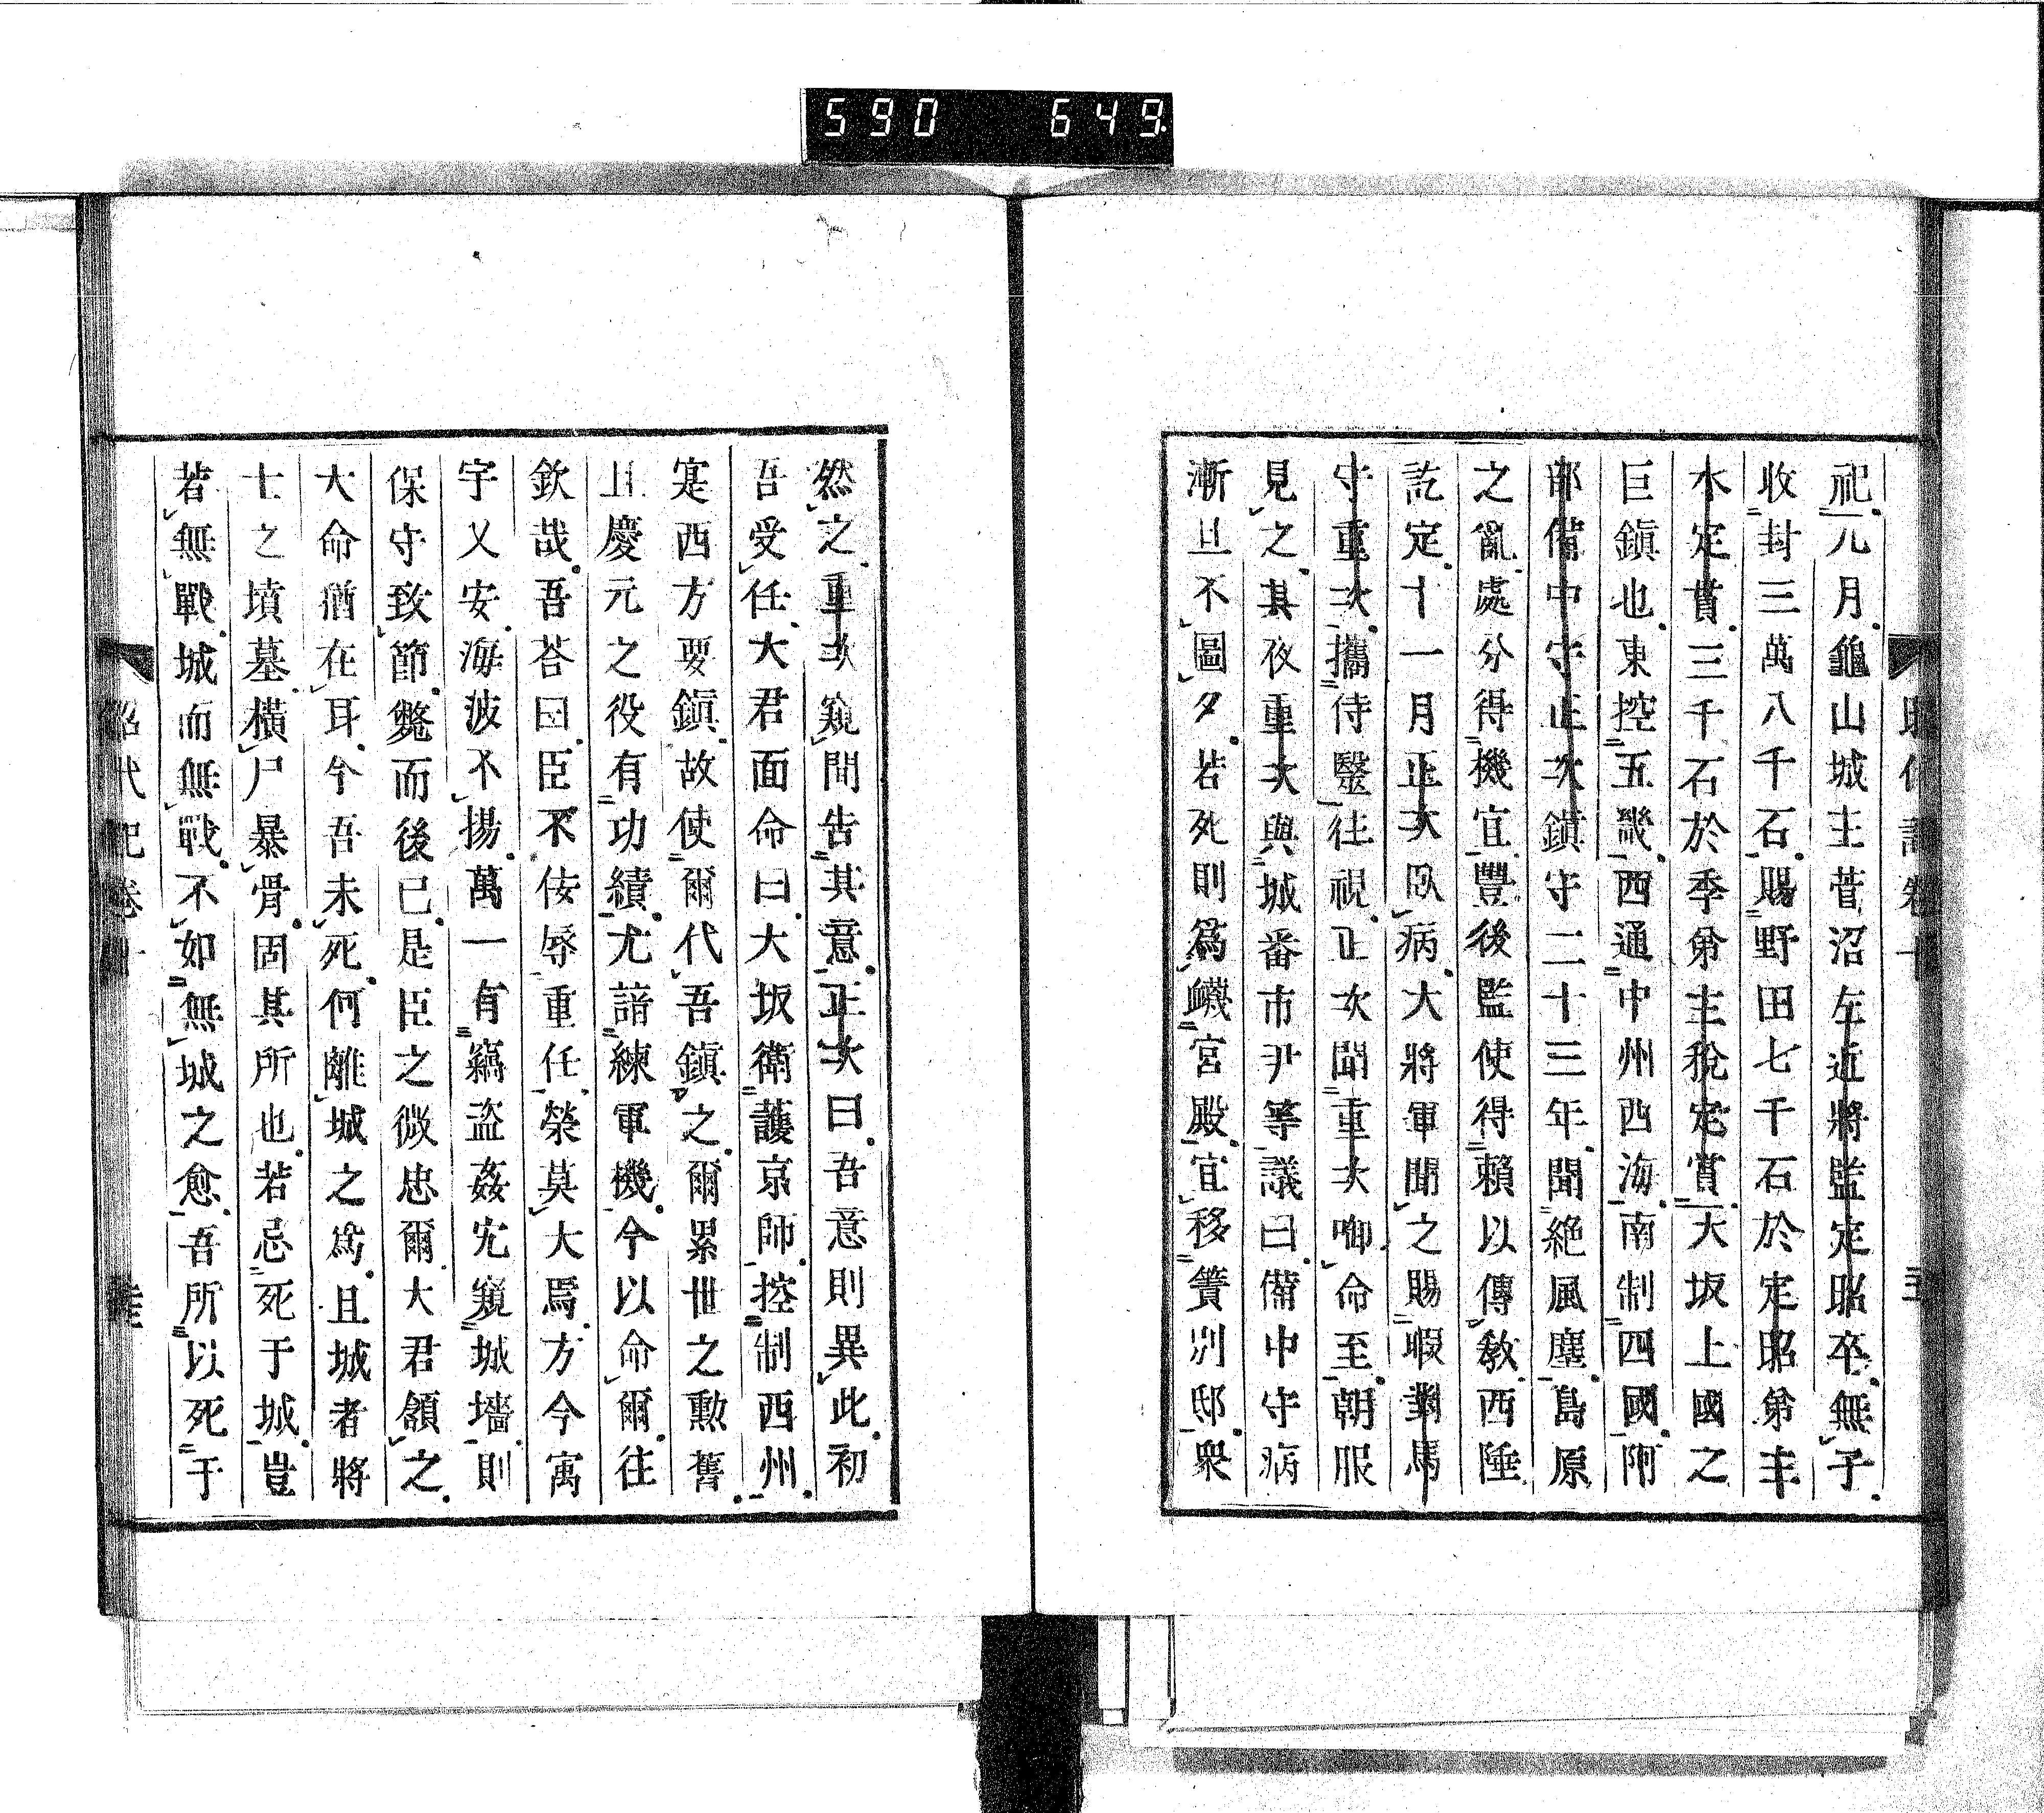 590 649.
祀九月龜山城主菅沼左近將監定昭卒無子
收封三萬八千石賜野田七千石於定昭第主
水定實三千石於季第主税定賞大坂上國之
巨鎮也東控五畿西通中州西海南制四國阿
部備中守正次鎮守二十三年聞絶風塵島原
之亂處分得機宜豐後監使得頼以傳教西陲
訖定十一月正次臥病大將軍聞之賜暇對馬
守重次攜侍醫往視正次聞重次啣命至朝服
見之其夜重次與城番市尹等議曰備中守病
漸旦不圖夕若死則爲衊宮殿宜移簀別邸衆
然之重次窺間告其意正次曰吾意則異此初
吾受任大君面命曰大坂衛護京師控制西州
寔西方要鎮故使爾代吾鎮之爾累世之勳舊
且慶元之役有功績尤諳練軍機今以命爾往
欽哉吾荅曰臣不佞辱重任榮莫大焉方今寓
宇乂安海波不揚萬一有竊盗姦宄窺城墻則
保守致節斃而後已是臣之微忠爾大君頷之
大命猶在耳今吾未死何離城之爲且城者將
士之墳墓橫尸暴骨固其所也若忌死于城豈
若無戰城而無戰不如無城之愈吾所以死于
昭代記卷十